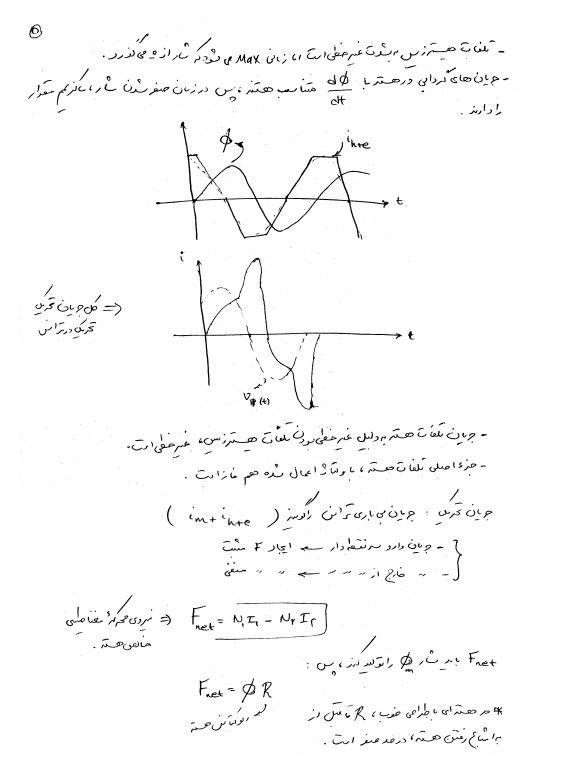 ۵
- تلفات هیسترزیس به شدت غیرخطی است اما زمانی Max می شود که شار از ∅ می گذرد.
- جریان های گردابی در هسته با dΦ/dt متناسب هستند، پس در زمان صفر شدن شار، ماکزیمم مقدار
را دارند.
Φ
i h+e
t
i
کل جریان تحریک ⇐
تحریک در ترانس
t
V P (t)
- جریان تلفات هسته به دلیل غیرخطی بودن تلفات هیسترزیس، غیرخطی است.
- جزء اصلی تلفات هسته، با ولتاژ اعمال شده هم فاز است.
جریان تحریک : جریان بی باری ترانس را گویند ( i m + i h+e )
- جریان وارد به نقطه دار ← ایجاد F مثبت
- " خارج از " " ← " " منفی
F net = N₁I₁ - N₂I₂ ⇒ نیروی محرکه مغناطیسی
خالص هسته.
F net باید شار Φ m را تولید کند، پس :
F net = Φ R
رلوکتانس هسته
* در هسته ای با طراحی خوب، R تا قبل از
به اشباع رفتن هسته، در حد صفر است.